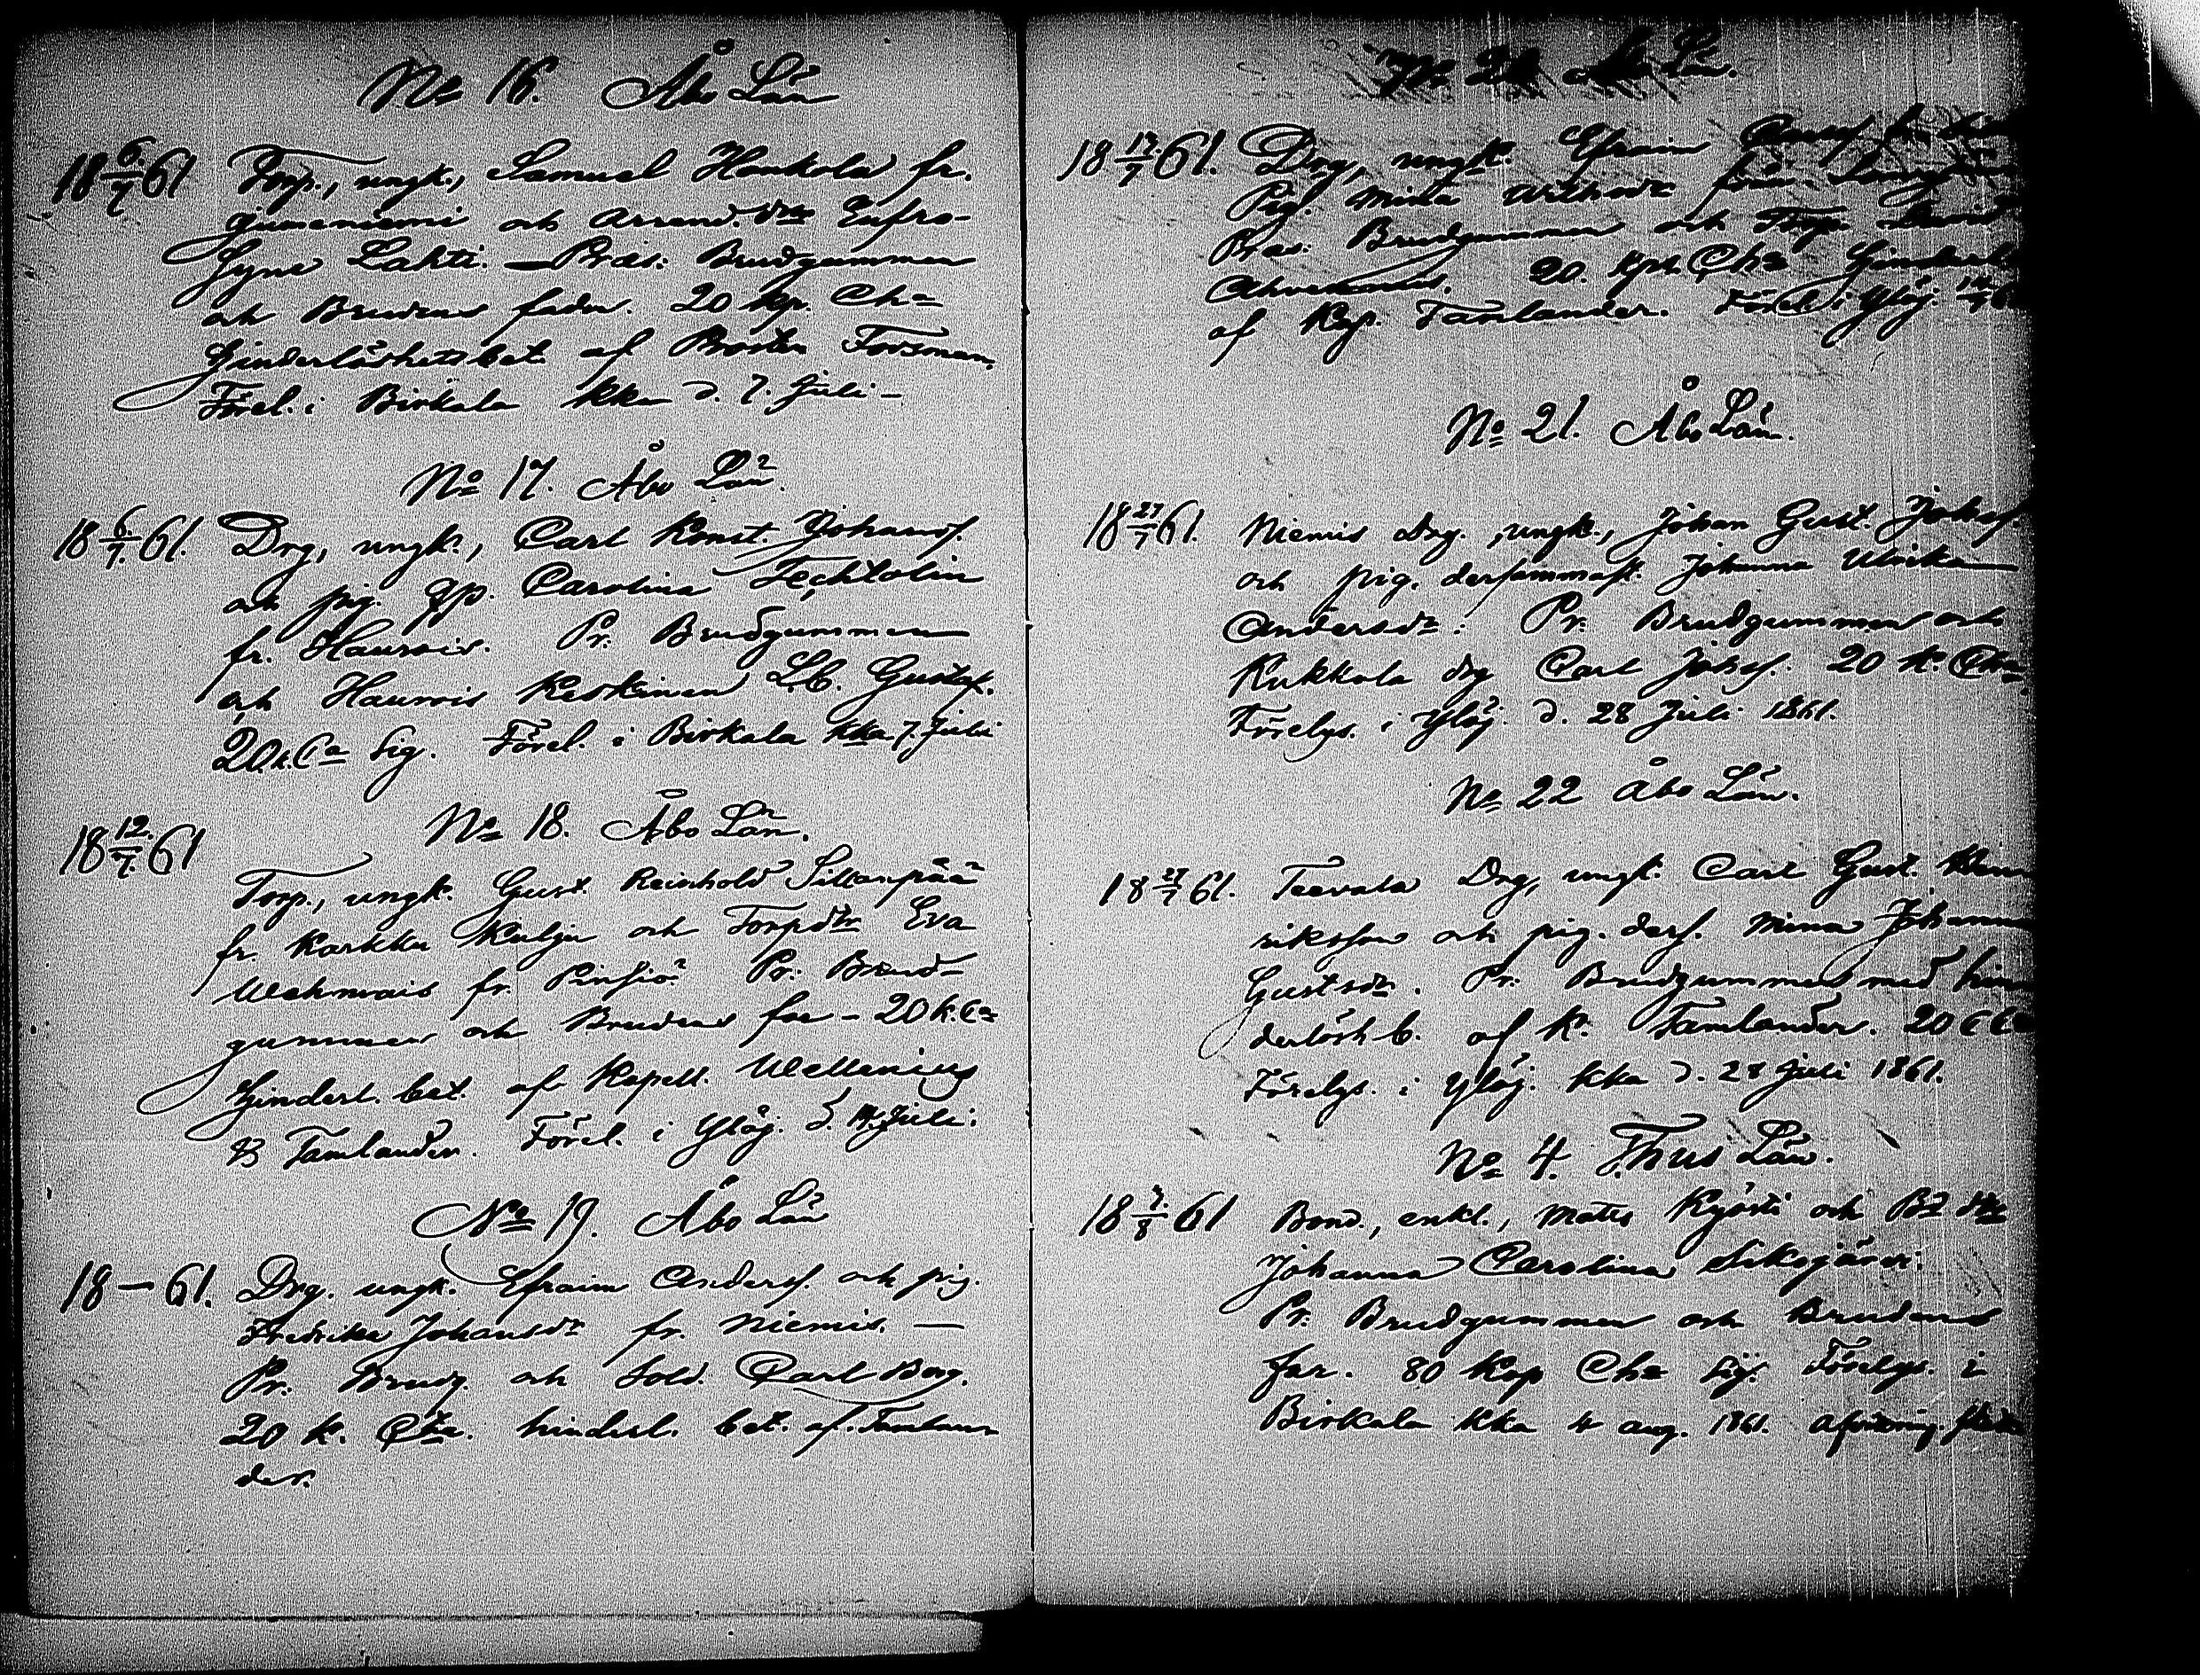 No 16. Åbo Län
18 6/7 61 Torp., ungk., Samuel Honkola fr.
och Arrend. dtr Eufro-
syne Lahti. — Præs: Brudgummen
och Brudens fader. 20 kp. Cha
Hinderlöshetsbet. af Prosten Forsman.
Förel. i Birkala kka d. 7. Juli –
No 17. Åbo Län.
18 6/7 61. Drg, ungk., Carl Konst. Johanss.
och pig. Carolina Techtolin
fr. Haurois. Pr. Brudgummen
och Haurois Keskinen Gustaf.
20 k. Ca Sig. Förel. i Birkala kka 7. Juli
No 18. Åbo Län.
18 12/7 61
Torp., ungk. Gust. Reinhold Sillanpää
fr. Karkku Kulju och Torpdtr Eva
fr. Pinsiö. Pr: Brud-
gummen och Brudens far – 20 k. Ca
Hinderl. bet. af Kapell. Wellenius
& Tamlander. Förel. i Ylöj. d. 14. Juli.
No 19. Åbo Län
18 — 61. Drg. ungk. Efraim Anderss. och pig.
Fredrika Johansdr fr. Niemis. —
Pr. Brudg. och Sold. Carl Borg.
20 k. Cha. hinderl. bet. af. Tamlan-
der.
No 20 Åbo Län.
18 12/7 61. Drg, ungk. Efraim
Pig. Mina från
Præs: Brudgummen och Torp.
20. kpk Cha Hinderl.
af Kap. Tamlander. Förel. i Ylöj.
No 21. Åbo Län.
18 27/7 61. Niemis Drg., ungk., Johan Gust. Johss
och pig. dersammast. Johanna Ulrika
Andersdr. Pr. Brudgummen och
Kukkola drg Carl Johss. 20 k. Cha.
Förelys. i Ylöj. d. 28 Juli 1861.
No 22 Åbo Län.
18 27/7 61. Teevala Drg, ungk. Carl Gust. Hen
riksson och pig. ders. Mina Johanna
Gustsdr. Pr. Brudgummen med hin
derlösh b. af K. Tamlander. 20
Förelys. i Ylöj. kka d. 28 Juli 1861.
No 4. Thus Län.
18 /8 61 Bond., enkl., Matts Kyösti och Bd dtr
Johanna Carolina Siksjärvi.
Pr. Brudgummen och Brudens
far. 80 Kop Cha Sig. Förelys. i
Birkala kka 4 aug. 1861.